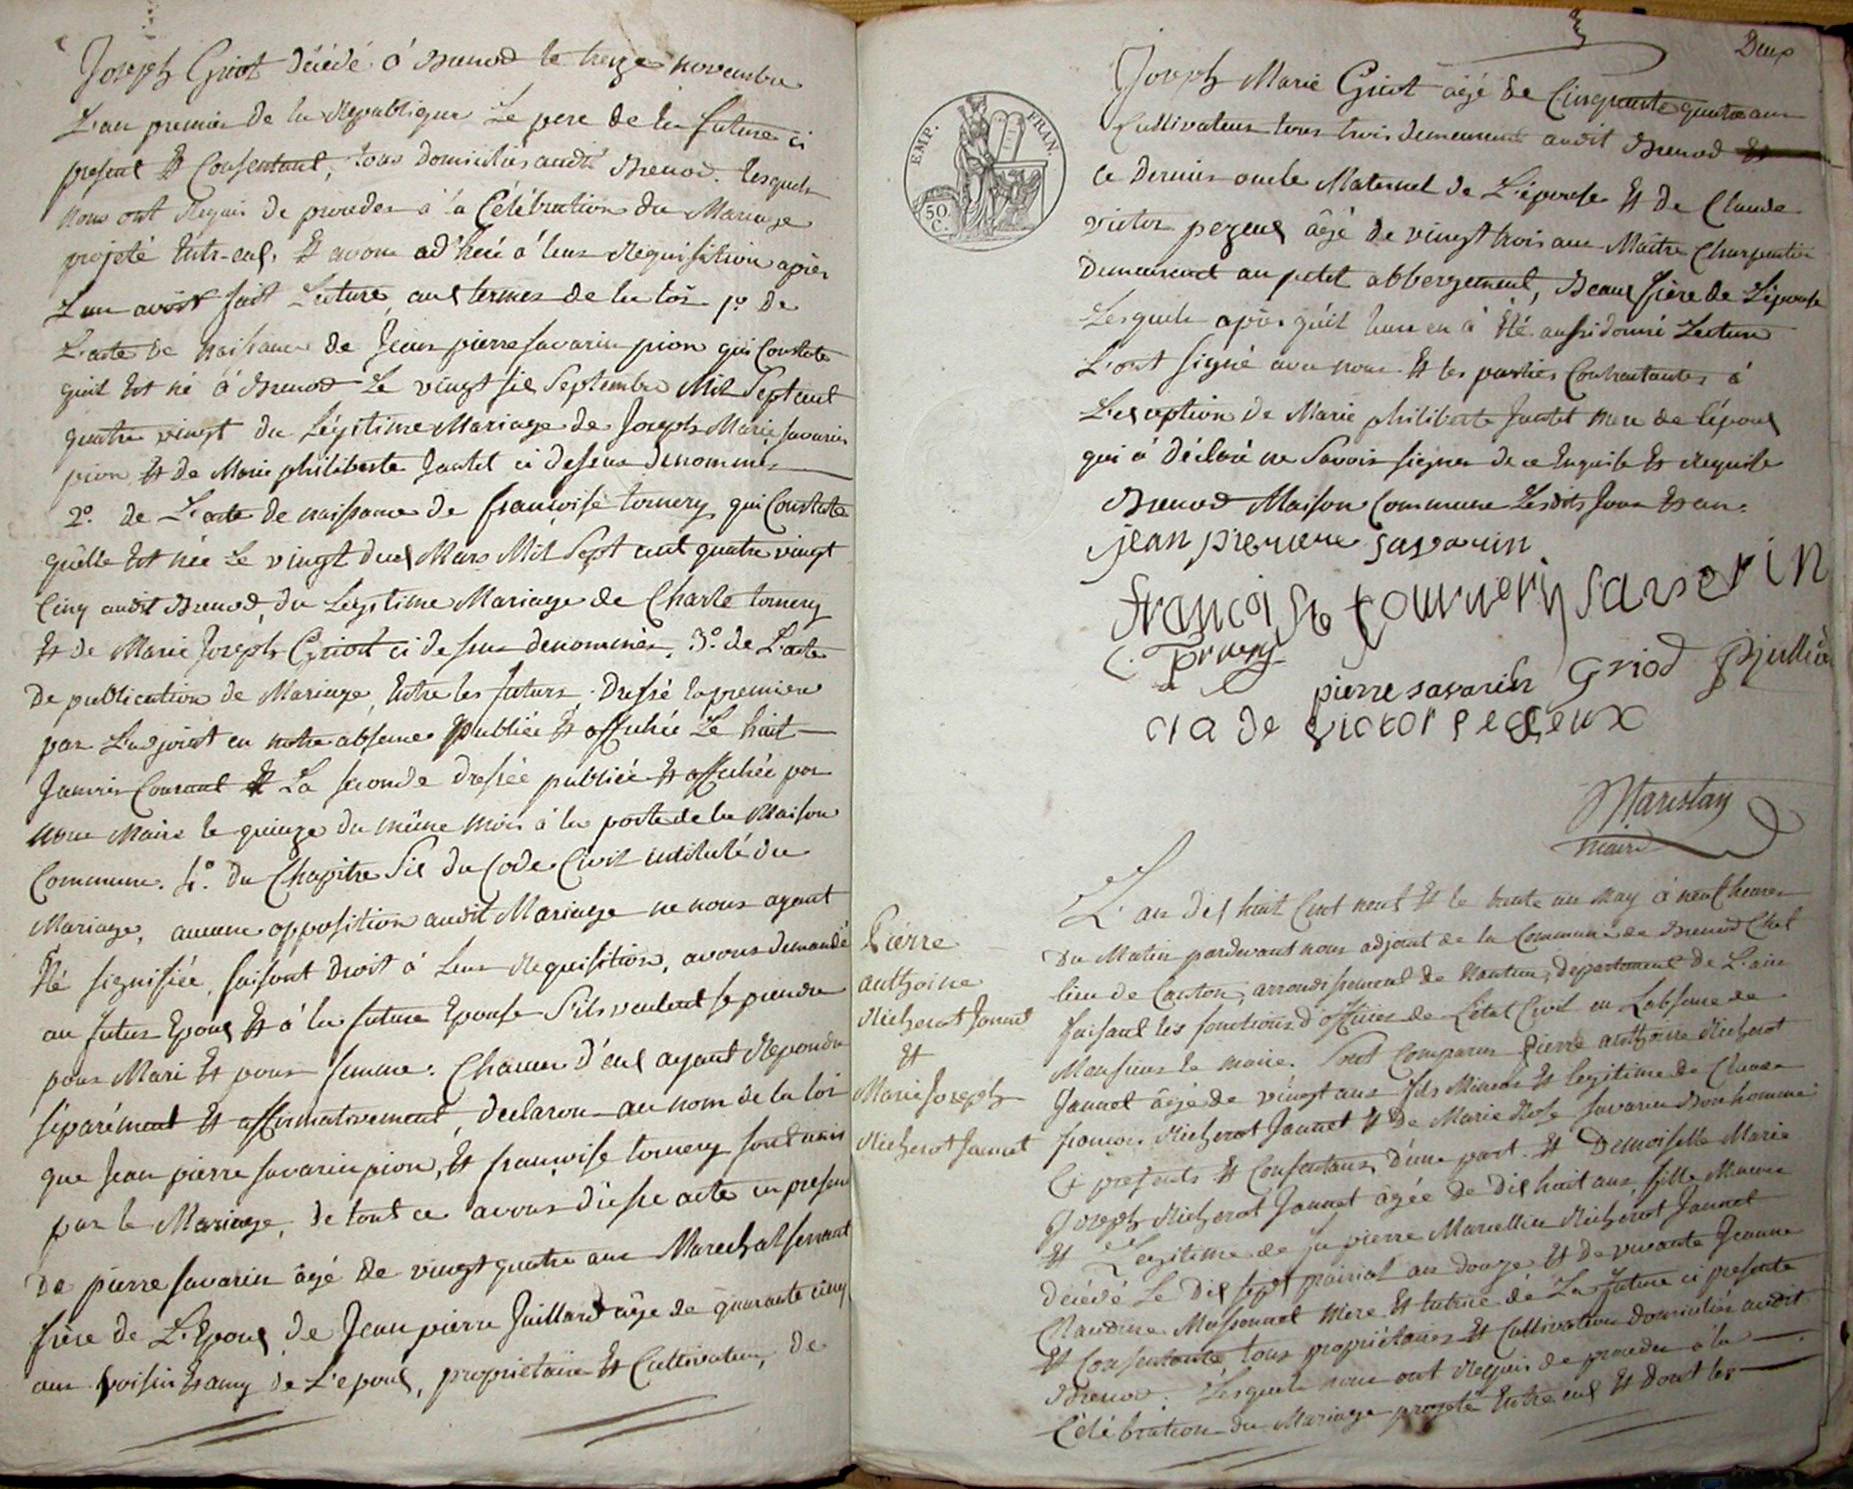 Joseph Griot décédé à Brenod le treize novembre
L'an premier de la Republique Le pere de la future ci
present Et Consentant, tous domiciliés audit Brenod. lesquels
nous ont Requis de proceder à la Célébration du Mariage
projeté Entr-eux, Et avons adhéré à leur Requisition après
Leur avoir fait Lecture aux termes de la loi 1º. De
L'acte de Naissance de Jean pierre Savarin pion qui Constate
quil Est né à Brenod Le vingt six Septembre Mil Sept cent
quatre vingt du Légitime Mariage de Joseph Marie Savarin
pion Et de Marie philiberte Jantet ci dessus denommés
2º. de L'acte de naissance de françoise tornery qui Constate
quelle Est née Le vingt deux Mars Mil Sept cent quatre vingt
Cinq audit Brenod, du Legitime Mariage de Charle tornery
Et de Marie Joseph Griot ci dessus denommés, 3º. de L'acte
De publication de Mariage, Entre les futurs. Dressé la premiere
par L'adjoint en notre absence publiée Et affichée Le huit
Janvier Courant Et La seconde dressée publiée Et affichée par
Nous Maire le quinze du même mois à la porte de la Maison
Commune. 4º. du Chapitre Six du Code Civil intitulé du
Mariage, aucune opposition audit Mariage ne nous ayant
Eté signifiée, faisant droit à Leur Requisition, avons demandé
au futur Epoux Et à la future Epouse S'ils veulent se prendre
pour Mari Et pour femme. Chacun d'eux ayant Repondu
séparément Et affirmativement, declarons au nom de la loi
que Jean pierre Savarin pion, Et françoise tornery sont unis
par le Mariage, de tout ce avons dressé acte en presence
De pierre Savarin âgé de vingt quatre ans Marechal ferrant
frère de L'Epoux, de Jean pierre Juillard âgé de quarante cinq
ans voisin Et amy de L'epoux, propriétaire Et Cultivateur, de
Deux
Joseph Marie Griot âgé de Cinquante quatre ans
Cultivateur tous trois demeurant audit Brenod Et
ce dernier oncle Maternel de L'épouse Et de Claude
victor pezeux âgé de vingt trois ans Maitre Charpentier
Demeurant au petit abbergement, Beaux frère de L'épouse
EMP. FRAN.
50. C.
Lesquels après qu'il leur en à Eté aussi donné Lecture
L'ont signé avec nous Et les parties Contractantes à
L'exception de Marie philiberte Jantet mere de l'époux
qui à déclaré ne Savoir signer de ce Enquise Et Requise
Brenod Maison Commune Lesdits Jour Et an.
jean pierrere savarin
francoise tournery savarin
C. Tornery
pierre savarin Griod
cla de victor peseux
maire
L'an dix huit Cent neuf Et le trente un May à neuf heures
Du Matin pardevant nous adjoint de la Commune de Brenod Chef
lieu de Canton, arrondissement de Nantua, département de L'ain
faisant les fonctions d'officier de L'état Civil en L'absence de
Monsieur le maire. Sont Comparus Pierre anthoine Richerot
Jannet âgé de vingt ans fils Mineur Et legitime de Claude
francois Richerot Jannet Et de Marie Rose Savarin Bonhomme
Ci presents Et Consentans, d'une part. Et Demoiselle Marie
Joseph Richerot Jannet âgée de Dix huit ans fille Mineure
Et Legitime de fu pierre Marcellin Richerot Jannet
décédé Le Dix sept prairial an douze Et de vivante Jeanne
Claudine Massonnet Mere Et tutrice de La future ci presente
Et Consentante, tous propriétaires Et Cultivateurs domiciliés audit
Brenod. Lesquels nous ont Requis de proceder à la
Célébration du Mariage projeté Entre eux Et dont les
Pierre
anthoine
Richerot Jannet
Et
Marie Joseph
Richerot Jannet